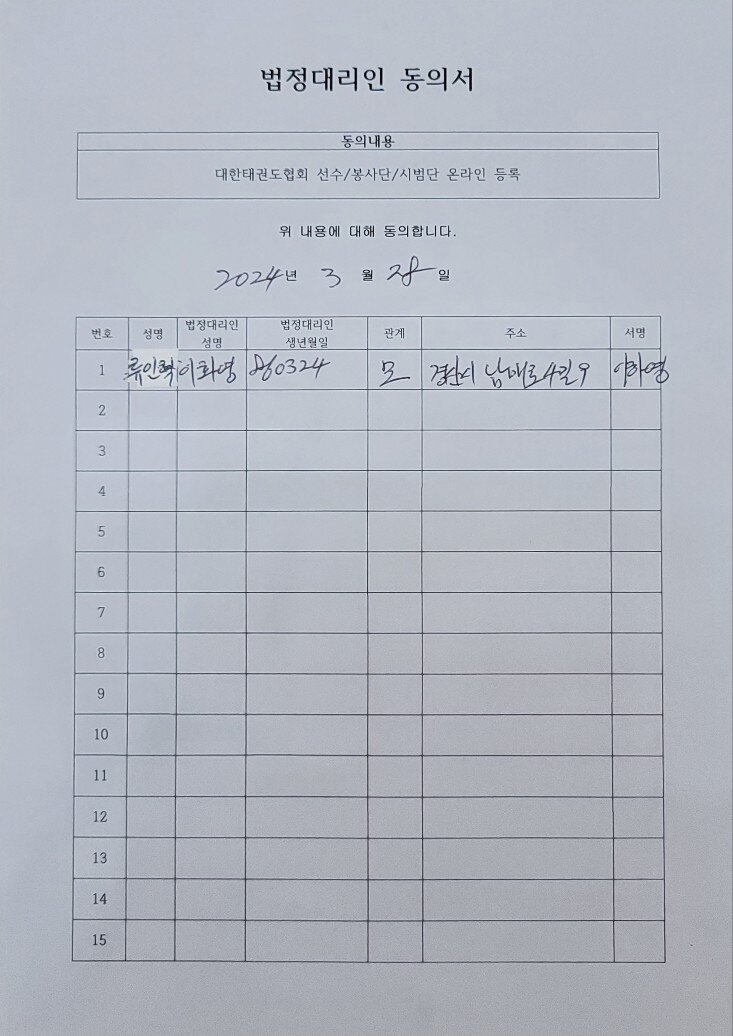 법정대리인 동의서
동의내용
대한태권도협회 선수/봉사단/시범단 온라인 등록
위 내용에 대해 동의합니다.
2024년 3 월 28 일
번호 성명 법정대리인 성명 법정대리인 생년월일 관계 주소 서명
1 류인혁 이화영 0324 모 경산시 남매로4길9 이화영
2
3
4
5
6
7
8
9
10
11
12
13
14
15